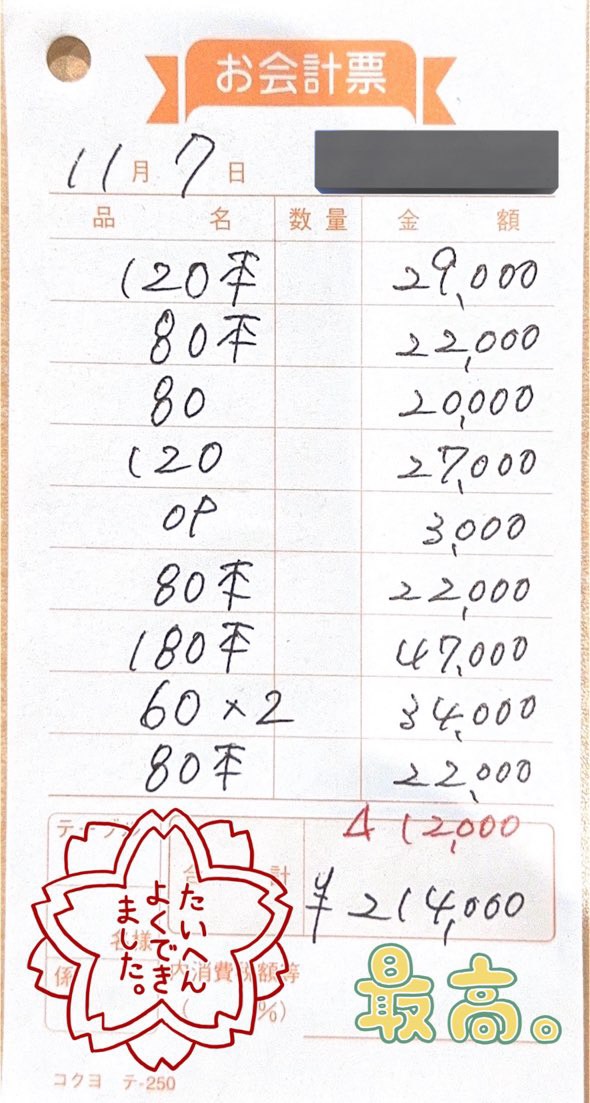 お会計票
11月7日
品名 数量 金額
120本 29,000
80本 22,000
80 20,000
120 27,000
OP 3,000
80本 22,000
180本 47,000
60×2 34,000
80本 22,000
テーブル
△12,000
合計 ¥214,000
名様
係
内消費税額等
( %)
たいへん
よくでき
ました。
最高。
コクヨ テ-250